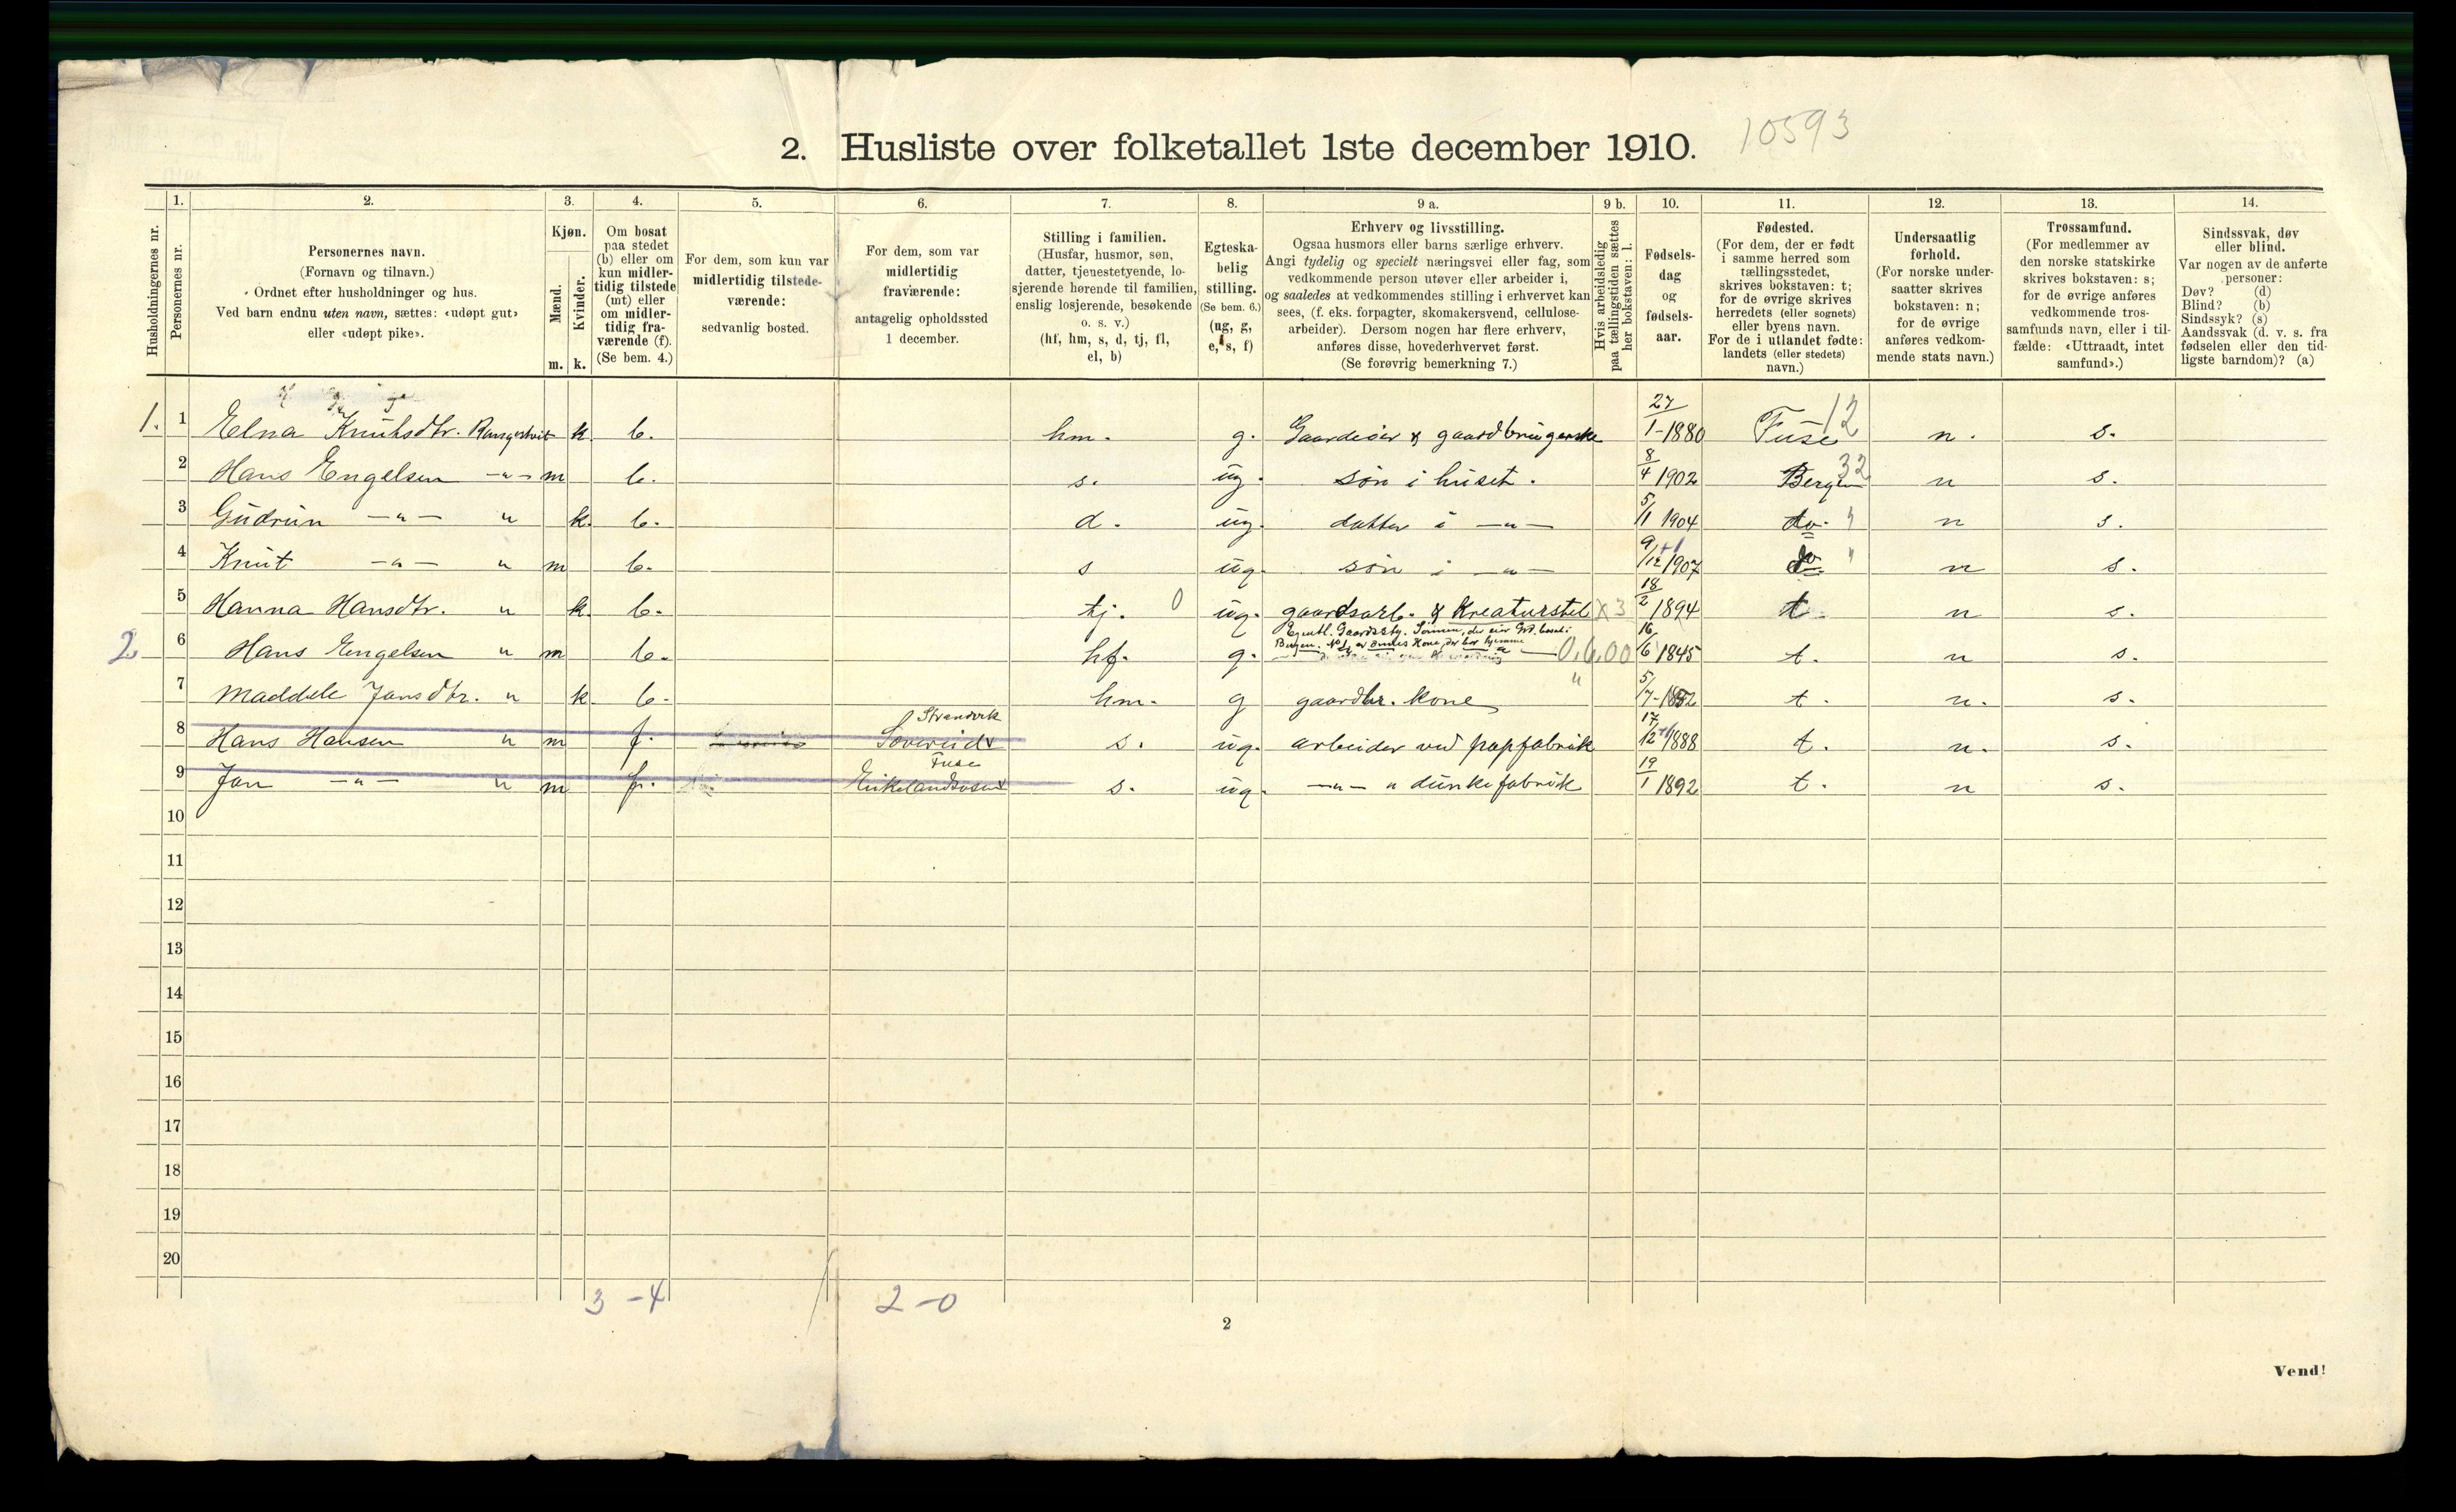 10593
2. Husliste over folketallet 1ste december 1910.
Husholdningernes nr.
1.
Personernes nr.
2.
Personernes navn.
(Fornavn og tilnavn.)
Ordnet efter husholdninger og hus.
Ved barn endnu uten navn, sættes: «udøpt gut»
eller «udøpt pike».
3.
Kjøn.
Mænd.
Kvinder.
m. k.
4.
Om bosat
paa stedet
(b) eller om
kun midler-
tidig tilstede
(mt) eller
om midler-
tidig fra-
værende (f).
(Se bem. 4.)
5.
For dem, som kun var
midlertidig tilstede-
værende:
sedvanlig bosted.
6.
For dem, som var
midlertidig
fraværende:
antagelig opholdssted
1 december.
7.
Stilling i familien.
(Husfar, husmor, søn,
datter, tjenestetyende, lo-
sjerende hørende til familien,
enslig losjerende, besøkende
o. s. v.)
(hf, hm, s, d, tj, fl,
el, b)
8.
Egteska-
belig
stilling.
(Se bem. 6.)
(ug, g,
e, s, f)
9 a.
Erhverv og livsstilling.
Ogsaa husmors eller barns særlige erhverv.
Angi tydelig og specielt næringsvei eller fag, som
vedkommende person utøver eller arbeider i,
og saaledes at vedkommendes stilling i erhvervet kan
sees, (f. eks. forpagter, skomakersvend, cellulose-
arbeider). Dersom nogen har flere erhverv,
anføres disse, hovederhvervet først.
(Se forøvrig bemerkning 7.)
9 b.
Hvis arbeidsledig
paa tællingstiden sættes
her bokstaven: l.
10.
Fødsels-
dag
og
fødsels-
aar.
11.
Fødested.
(For dem, der er født
i samme herred som
tællingsstedet,
skrives bokstaven: t;
for de øvrige skrives
herredets (eller sognets)
eller byens navn.
For de i utlandet fødte:
landets (eller stedets)
navn.)
12.
Undersaatlig
forhold.
(For norske under-
saatter skrives
bokstaven: n;
for de øvrige
anføres vedkom-
mende stats navn.)
13.
Trossamfund.
(For medlemmer av
den norske statskirke
skrives bokstaven: s;
for de øvrige anføres
vedkommende tros-
samfunds navn, eller i til-
fælde: «Uttraadt, intet
samfund».)
14.
Sindssvak, døv
eller blind.
Var nogen av de anførte
personer:
Døv? (d)
Blind? (b)
Sindssyk? (s)
Aandssvak (d. v. s. fra
fødselen eller den tid-
ligste barndom)? (a)
1. 1 Elna Knutsdtr. k. b. hm. g. Gaardeier & gaardbrugerske 27/1-1880 Fuse 12 n. s.
2 Hans Engelsen -"- m b. s. ug. søn i huset. 8/4 1902 Bergen 32 n s.
3 Gudrun -"- " k. b. d. ug. datter i -"- 5/11 1904 do. " n s.
4 Knut -"- " m b. s ug. søn i -"- 9/12 +1 1907 do " n s.
5 Hanna Hansdtr. " k. b. tj. 0 ug. gaardsarb. & Kreaturstel x 3 18/2 1894 t. n s.
2. 6 Hans Engelsen " m b. hf. g. 0,6,00 16/6 1845 t. n s.
7 Maddele Jansdtr. " k. b. hm. g gaardbr. kone " 5/7-1852 t. n. s.
8 Hans Hansen " m f. Strandvik Sævereid s. ug. arbeider ved papfabrik 17/12 +1 1888 t. n. s.
9 Jan -"- " m f. Fuse Eikelandsosen s. ug. -"- " dunkefabrik 19/1 1892 t. n s.
10
11
12
13
14
15
16
17
18
19
20
3 - 4 2 - 0
2
Vend!